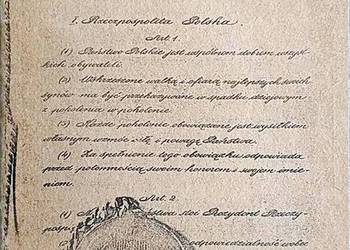 I. Rzeczpospolita Polska.
Art. 1.
(1) Państwo Polskie jest wspólnem dobrem wszyst-
kich obywateli.
(2) Wskrzeszone walką i ofiarą najlepszych swoich
synów ma być przekazywane w spadku dziejowym
z pokolenia w pokolenie.
(3) Każde pokolenie obowiązane jest wysiłkiem
własnym wzmóc siłę i powagę Państwa.
(4) Za spełnienie tego obowiązku odpowiada
przed potomnością swoim honorem i swojem imie-
niem.
Art. 2.
(1) stoi Prezydent Rzeczy-
pospo
(2) odpowiedzialność wobec